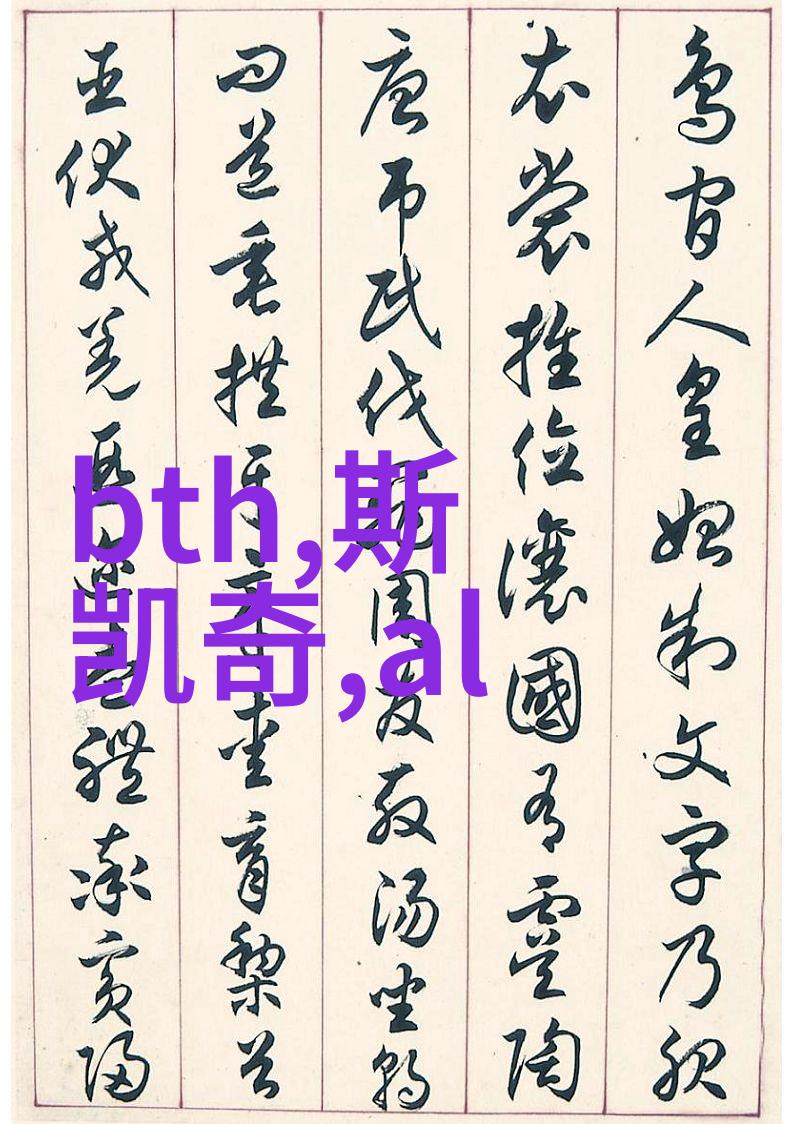 鳥官人皇始制文字乃服
衣裳推位讓國有虞陶
唐弔民伐罪周發殷湯坐朝
問道垂拱平章愛育黎首
臣伏戎羌遐邇壹體率賓歸
bth,斯
凯奇,al